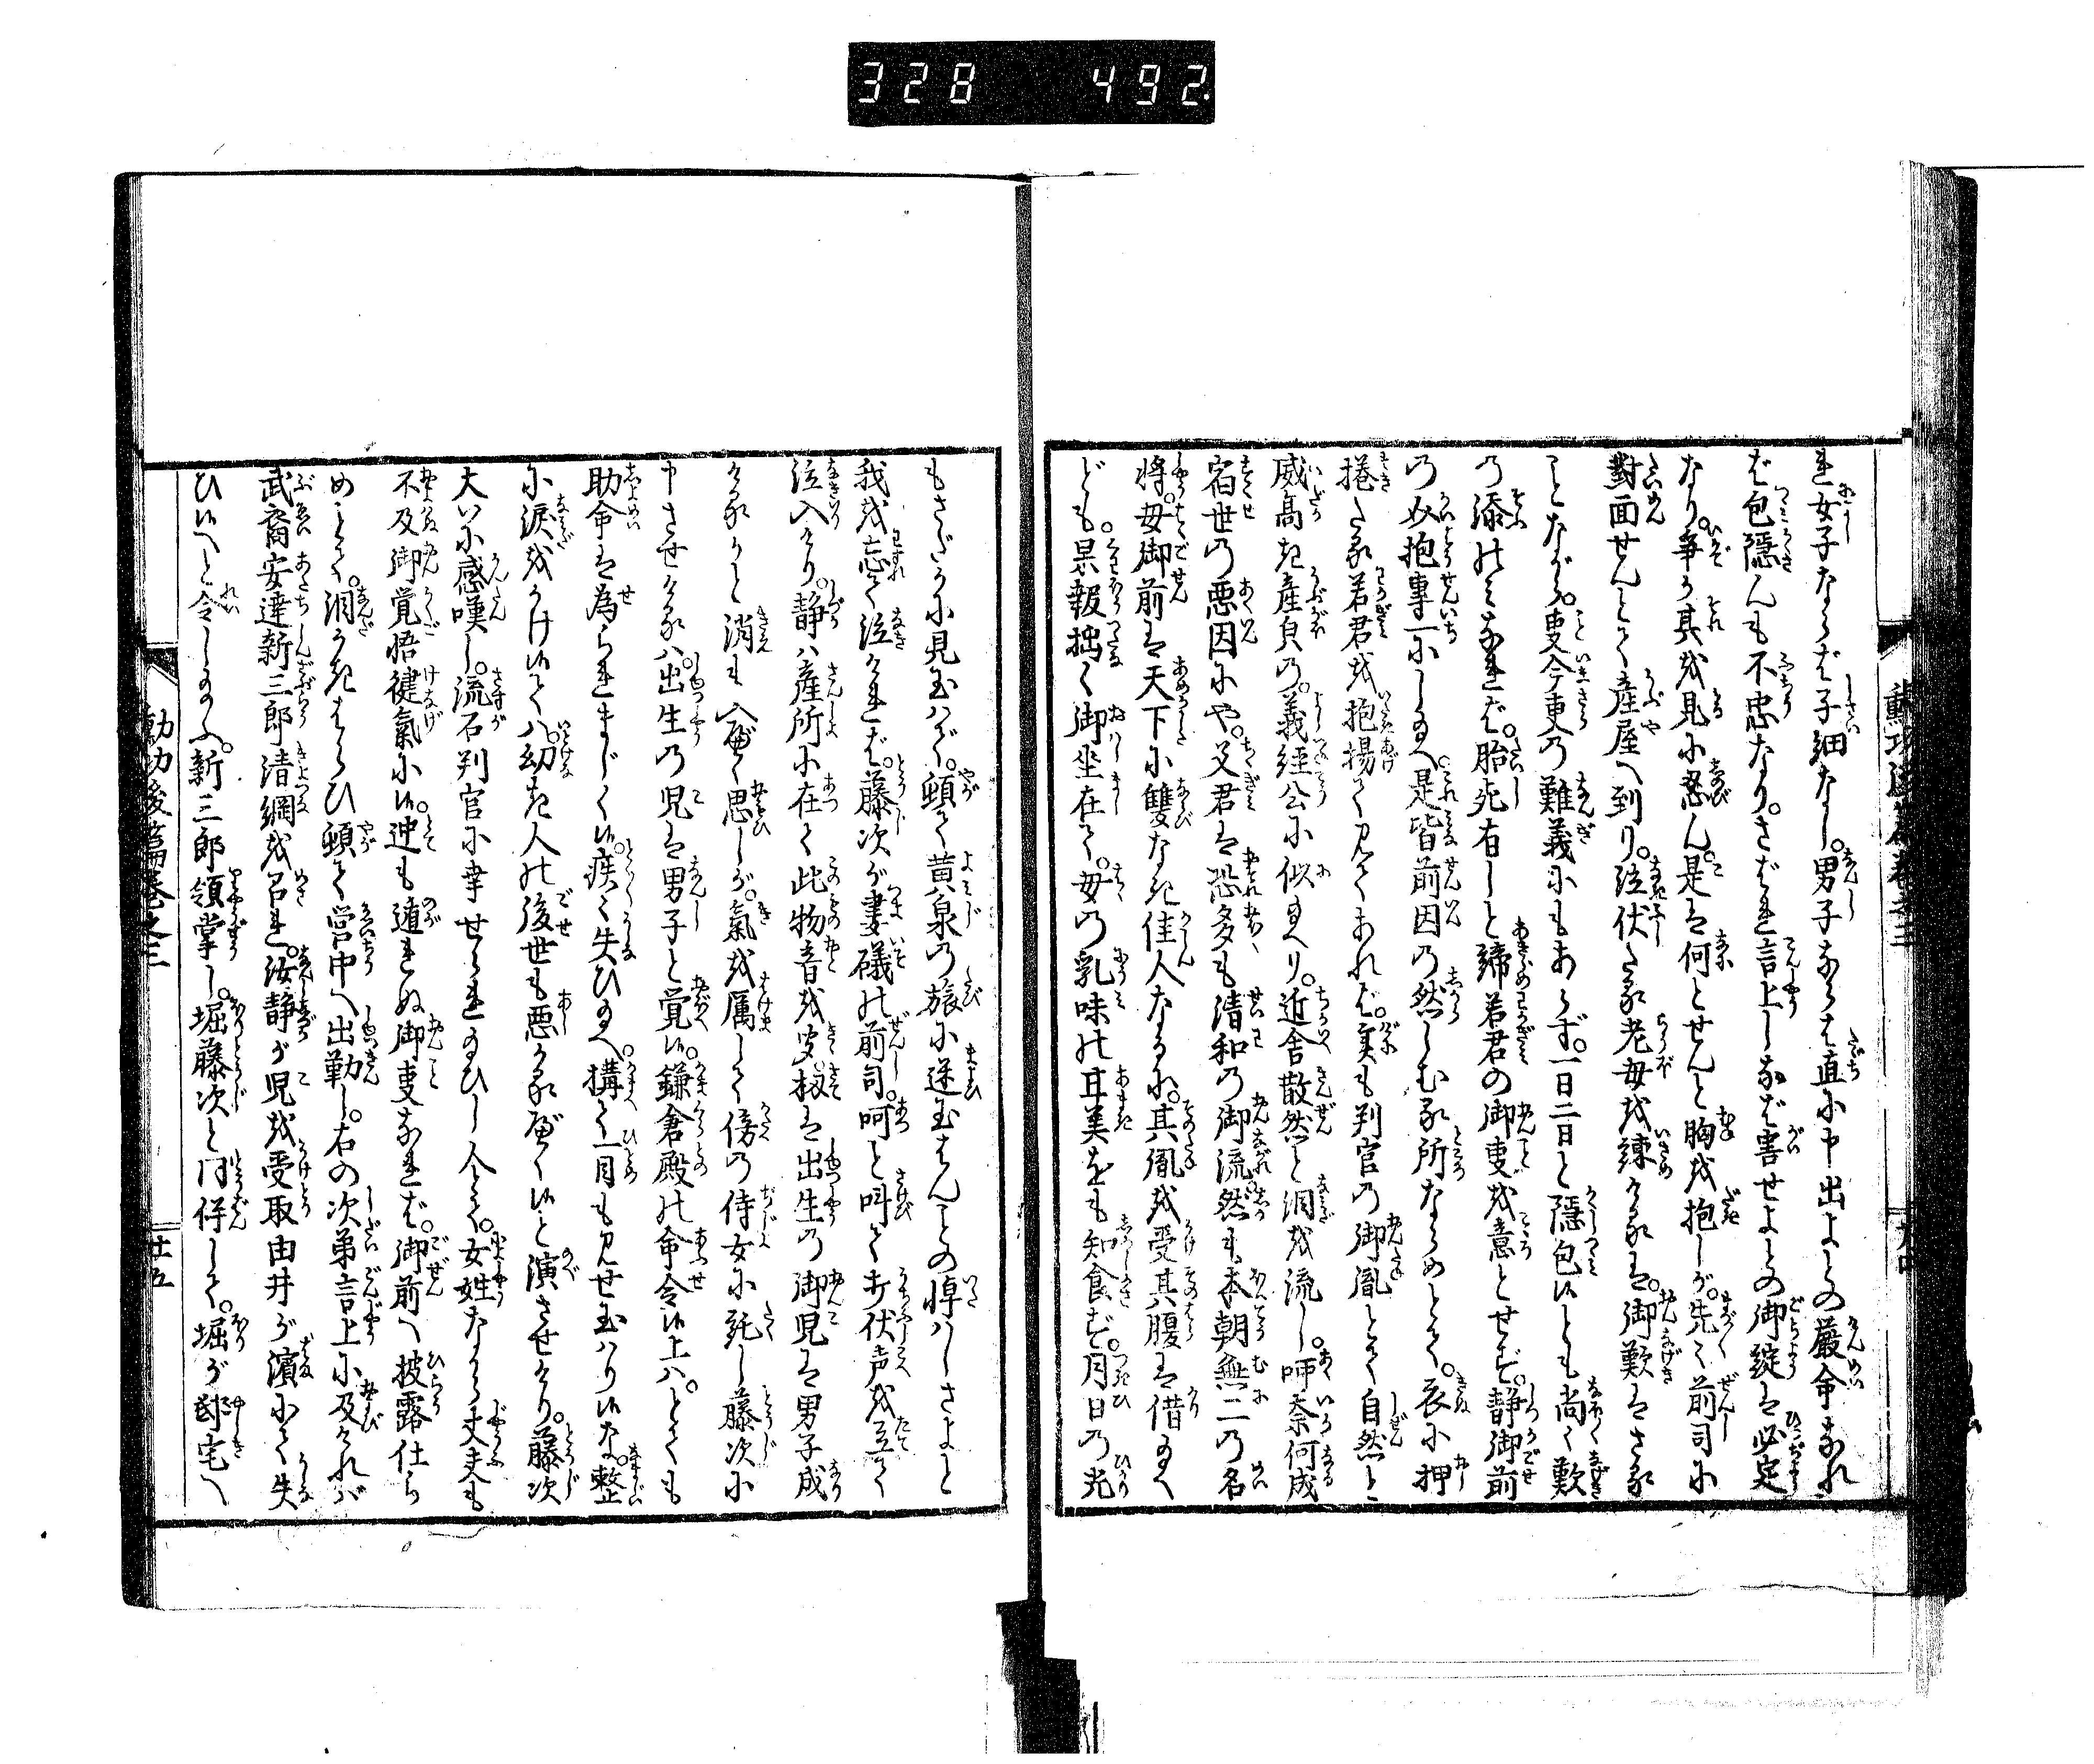 328 492
れ女子ならバ子細なし。男子ならは直に申出よとの厳命なれ
ば包隠んも不忠なり。さはれ言上しなば害せよとの御錠は必定
なり。争か其を見に忍ん。是は何とせんと胸を抱しが。先々前司に
對面せんとて産屋へ到り。泣伏たる老母を練ける は。御歎はさる
ことながら。事今更の難義にもあらず。一日二日と隠包候とも尚々歎
の添のみなれば。胎死有しと締若君の御事を意とせず。静御前
の 抱専一にし玉へ。是皆前因の然しむる所ならめとて。衣に押
捲たる若君を抱揚て見てあれば。実も判官の御胤とて自然と
威高き産貝の。義経公に似玉へり。近舎散然と泪を流し。呀奈何成
宿世の悪因にや。父君は恐多も清和の御流。然も本朝無二の名
将。母御前は天下に雙なき佳人なるに。其胤を受其腹を借玉へ
ども。果報拙く御坐在て。母の乳味の甘美をも知食ず。月日の光
勲功後篇巻之三
もさだかに見玉はで。頓て黄泉の旅に迷玉はんことの悼ハしさよと
我を忘て泣ければ。藤次が妻礒の前司。呵と叫て打伏声を立て
泣入けり。静ハ産所に在て此物音を聞。扨は出生の御児は男子成
けるかと消も入べく思しが。氣を属して傍の侍女に託し藤次に
申させけるハ。出生の児は男子と覚候。鎌倉殿の命令候上ハ。とても
助命は為られまじく候。疾々失ひ玉へ。構て一目も見せ玉ハり候な。整
に涙をかけ候てハ。幼き人の後世も悪かるべく候と演させけり。藤次
大いに感嘆し。流石判官に幸せられ玉ひし人とて。女姓ながら丈夫も
不及御覚悟健氣に候。迚も遁れぬ御事なれば。御前へ披露仕ら
めとて。泪かきはらひ頓て営中へ出勤し。右の次第言上に及けれバ
武裔安達新三郎清綱を召れ。汝静が児を受取由井が濱にて失
ひ候へと令し玉ふ。新三郎領掌し。堀藤次と同伴して。堀が邸宅へ
勲功後篇巻之三
廿五